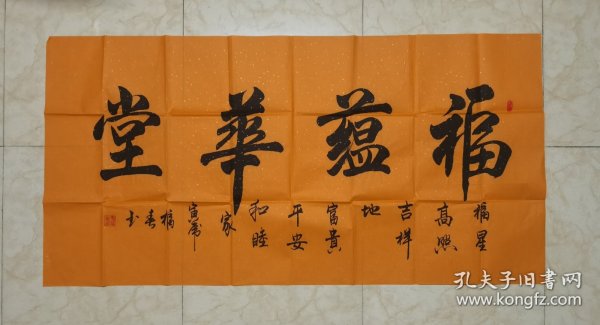 福蕴華堂
福星
高照
吉祥
地
富貴
平安
和睦
家
寅虎
福春
书
孔夫子旧书网
www.kongfz.com